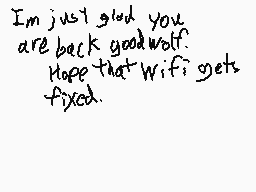 Im just glad you
are back goodwolf.
Hope that wifi gets
fixed.